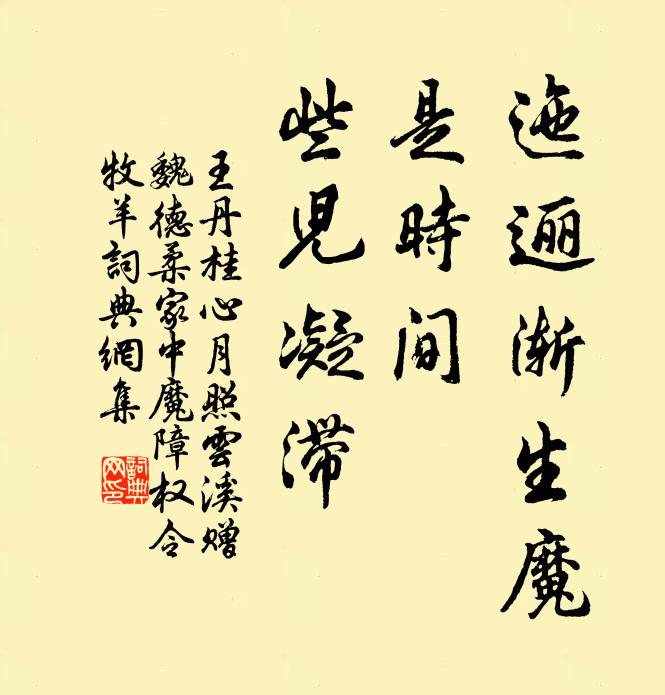 迤逦渐生魔
是時间
些児凝滞
王丹桂心月照雲溪赠
魏德柔家中魔障权令
牧羊詞典網集
詞典网印